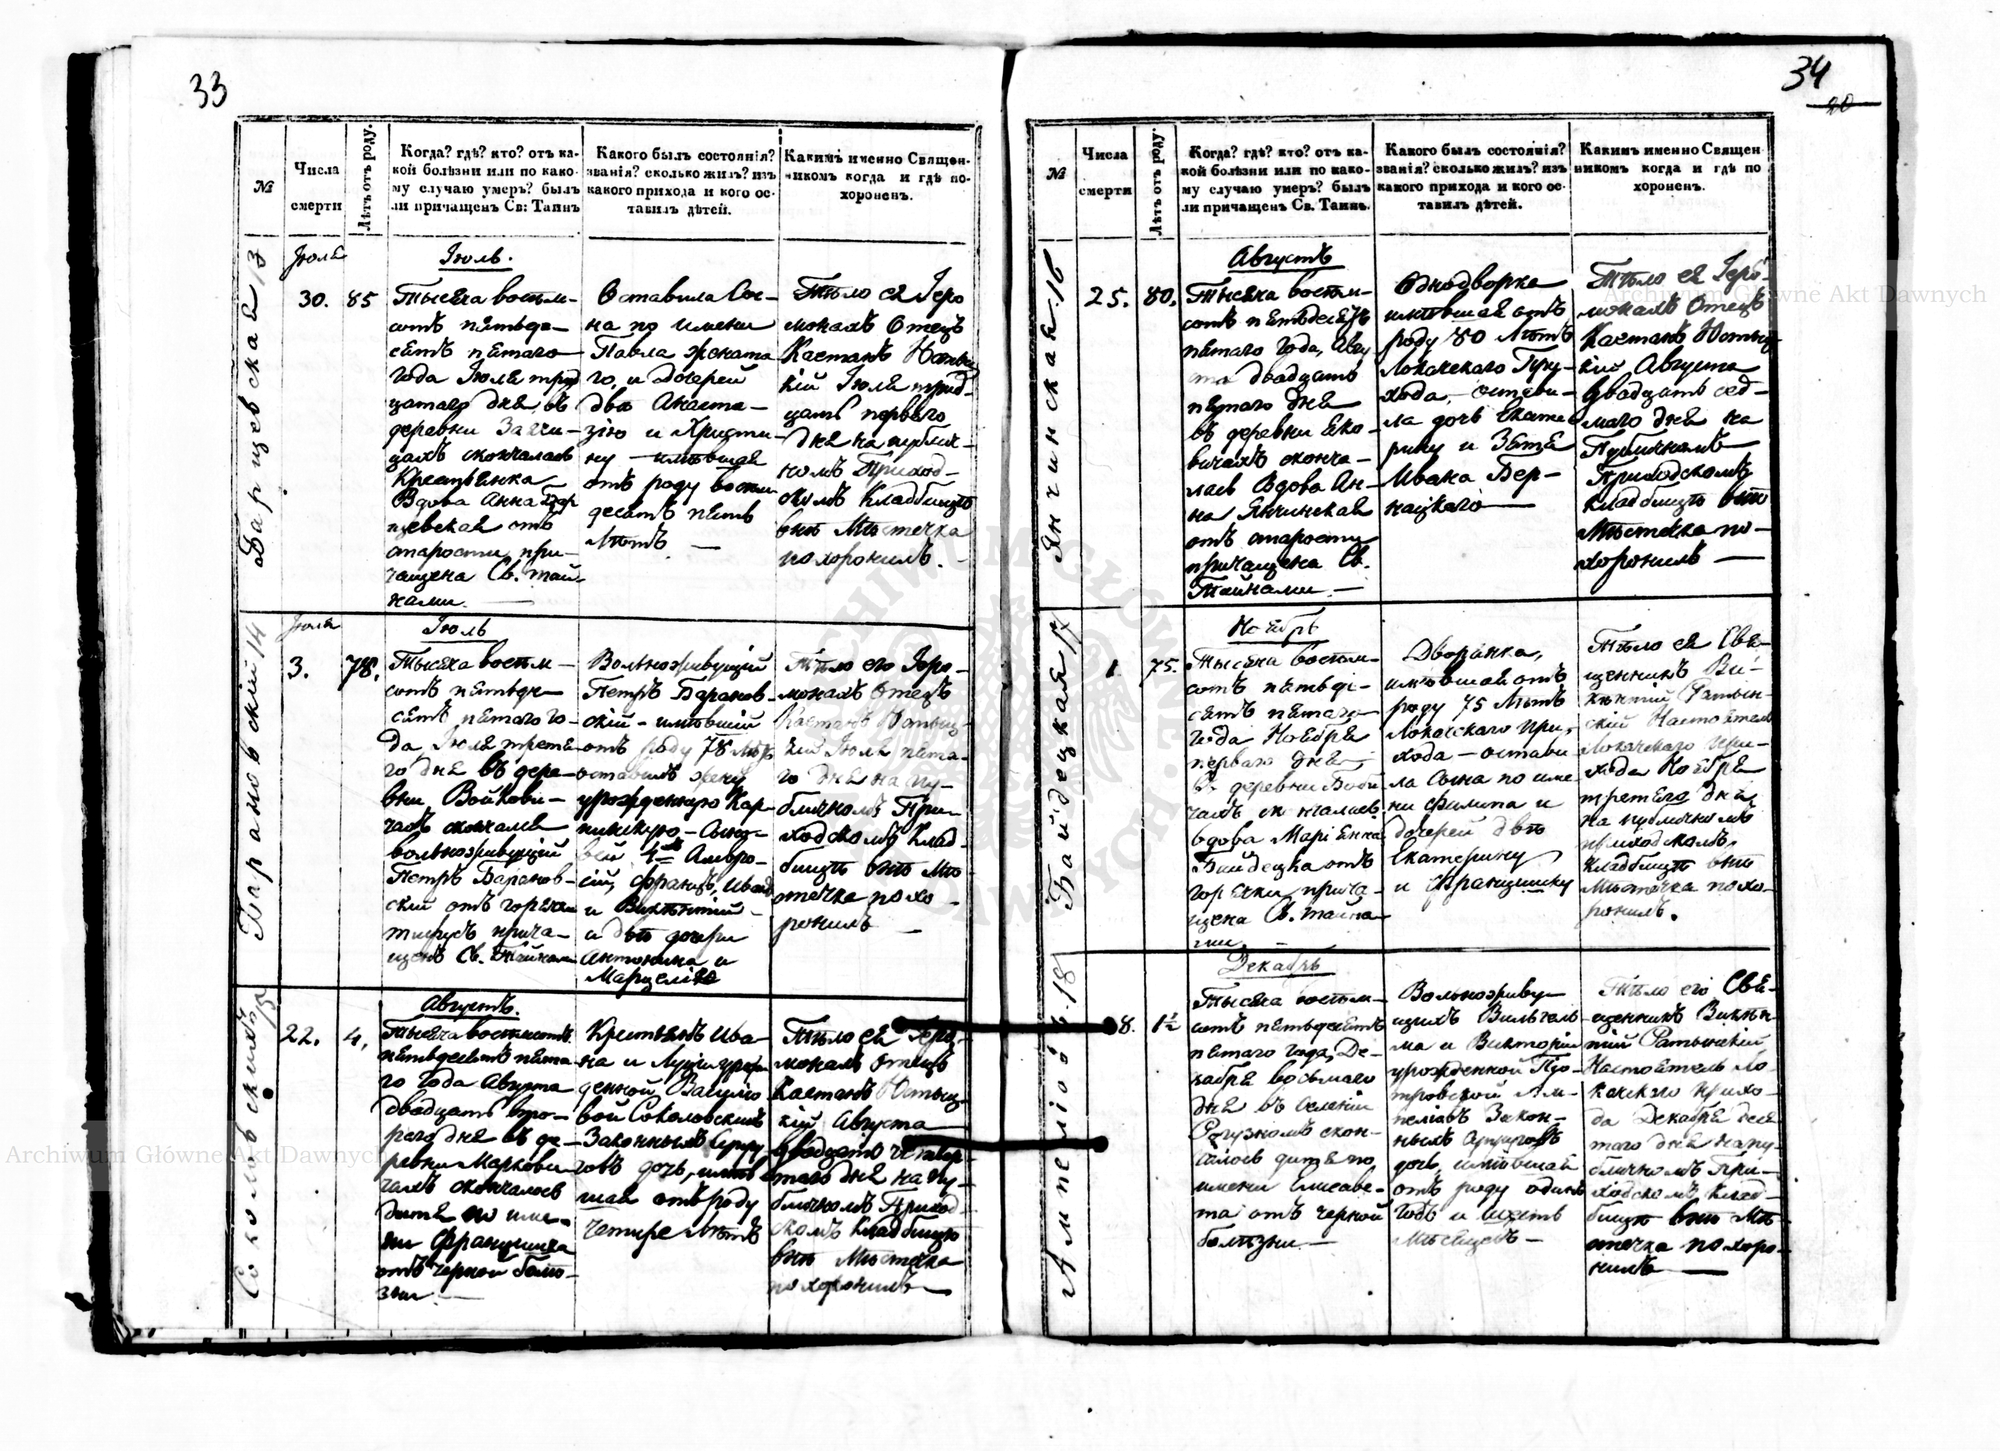 33
№
Числа
смерти
Лѣтъ отъ роду.
Когда? гдѣ? кто? отъ ка-
кой болѣзни или по како-
му случаю умеръ? былъ
ли причащенъ Св: Таинъ
Какого былъ состоянія?
званія? сколько жилъ? изъ
какого прихода и кого ос-
тавилъ дѣтей.
Какимъ именно Священ-
никомъ когда и гдѣ по-
хороненъ.
13
Іюля
30.
85
Іюль.
Тысяча восем-
сотъ пятьде-
сятъ пятаго
года Іюля трид
цатаго дня, въ
деревни
цахъ скончалась
Крестьянка
Вдова Анна
цевская отъ
старости, при-
чащена Св. тай-
нами.
Оставила Сы-
на по имени
Павла жената
го, и дочерей
двѣ Анаста-
зію и Христи-
ну имѣвшая
отъ роду восем
десятъ пять
Лѣтъ —
Тѣло ея Іеро
монахъ Отецъ
Каетанъ
кій Іюля трид
цать перваго
дня на публич-
номъ Приход-
скомъ Кладбищѣ
внѣ Мѣстечка
похоронилъ. -
Барановскій 14
Іюля
3.
78.
Іюль
Тысяча восем-
сотъ пятьде-
сятъ пятаго го-
да, Іюля третя-
го дня въ дере-
вни Войкови-
чахъ скончался
вольноживущій
Петръ Баранов-
скій отъ горячки
прича-
щенъ Св. Тайнам
Вольноживущій
Петръ Баранов-
скій - имѣвшій
отъ роду 78 лѣтъ
оставилъ жену
урожденную Кар-
Сыно-
вей 4хъ Амвро-
сій, Францъ, Иванъ
и Викентій -
и двѣ дочери
Антонина и
Марцелію
Тѣло его Іеро-
монахъ Отецъ
Каетанъ
кій Іюля пята-
го дня на пу-
бличномъ При-
ходскомъ Клад-
бищѣ внѣ Мѣ-
стечка похо-
ронилъ —
15
22.
4.
Августъ.
Тысяча восемсотъ
пятьдесятъ пята-
го года Августа
двадцать вто-
рого дня въ де-
ревни Маркови-
чахъ скончалось
дитя по име-
ни Францишка
отъ черной болѣ-
зни —
Крестьянъ Ива-
на и Луціи урож
денной Васили-
вой Соколовскихъ
Законныхъ Супру-
говъ дочь, имѣв-
шая отъ роду
четире Лѣтъ
Тѣло ея Іеро-
монахъ Отецъ
Каетанъ
кій Августа
двадцать четвер-
таго дня на пу-
бличномъ Приход-
скомъ Кладбищѣ
внѣ Мѣстечка
похоронилъ —
34
20
№
Числа
смерти
Лѣтъ отъ роду.
Когда? гдѣ? кто? отъ ка-
кой болѣзни или по како-
му случаю умеръ? былъ
ли причащенъ Св. Таинъ.
Какого былъ состоянія?
званія? сколько жилъ? изъ
какого прихода и кого ос-
тавилъ дѣтей.
Какимъ именно Священ-
никомъ когда и гдѣ по
хороненъ.
Янчинская 16
25.
80.
Августъ
Тысяча восем-
сотъ пятьдесятъ
пятаго года, Авгу
ста двадцать
пятаго дня
въ деревни Яко-
вичахъ сконча-
лась Вдова Ан-
на Янчинская
отъ старости
причащена Св.
Тайнами. —
Однодворка
имѣвшая отъ
роду 80 Лѣтъ
Локачскаго При-
хода, - остави-
ла дочь Екате
рину и Зятя
Ивана Бер-
нацкаго —
Тѣло ея Іеро-
монахъ Отецъ
Каетанъ
кій Августа
двадцать сед-
маго дня на
Публичномъ
Приходскомъ
Кладбищѣ внѣ
Мѣстечка по-
хоронилъ —
Байдецкая 17
1.
75.
Ноябрь
Тысяча восем-
сотъ пятьде-
сятъ пятаго
года Ноября
перваго дня
въ деревни
чахъ скончалась
вдова Маріянна
Байдецка отъ
горячки, прича-
щена Св. тайна
ми. —
Дворянка,
имѣвшая отъ
роду 75 Лѣтъ
Локачскаго при-
хода - остави
ла Сына по име-
ни Филипа и
дочерей двѣ
Екатерину
и Францишку
Тѣло ея Свя-
щенникъ Ви-
кентій Ратын-
скій Настоятель
Локачскаго при-
хода Ноября
третяго дня
на публичномъ
приходскомъ
Кладбищѣ внѣ
Мѣстечка похо-
ронилъ.
18
8.
1½
Декабрь
Тысяча восем-
сотъ пятьдесятъ
пятаго года, Де-
кабря восьмаго
дня въ селеніи
скон-
чалось дитя по
имени Елисаве-
та отъ черной
болѣзни. —
Вольноживу-
щихъ Вильгель-
ма и Викторіи
урожденной Піо-
тровской Ам-
пеліовъ Закон-
ныхъ Супруговъ
дочь, имѣвшая
отъ роду одинъ
годъ и шесть
Мѣсяцевъ —
Тѣло его Свя-
щенникъ Викен-
тій Ратынскій
Настоятель Ло-
качскаго прихо-
да Декабря деся
таго дня на пу-
бличномъ При-
ходскомъ Клад-
бищѣ внѣ Мѣ-
стечка похоро-
нилъ —
Archiwum Główne Akt Dawnych
Archiwum Główne Akt Dawnych
ARCHIWUM GŁÓWNE AKT DAWNYCH